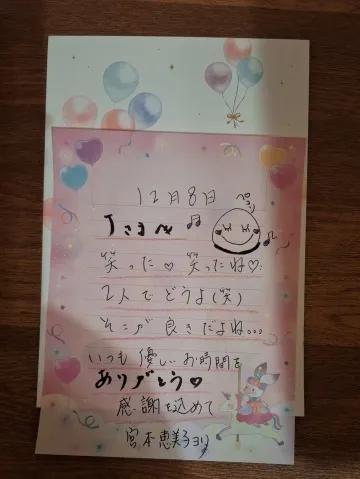 12月8日
ペコッ
Tさん♫
笑った♡ 笑ったね♡
2人でどうよ(笑)
そこが良きだよね...
いつも優しいお時間を
ありがとう♡
感謝を込めて
宮本恵美子より